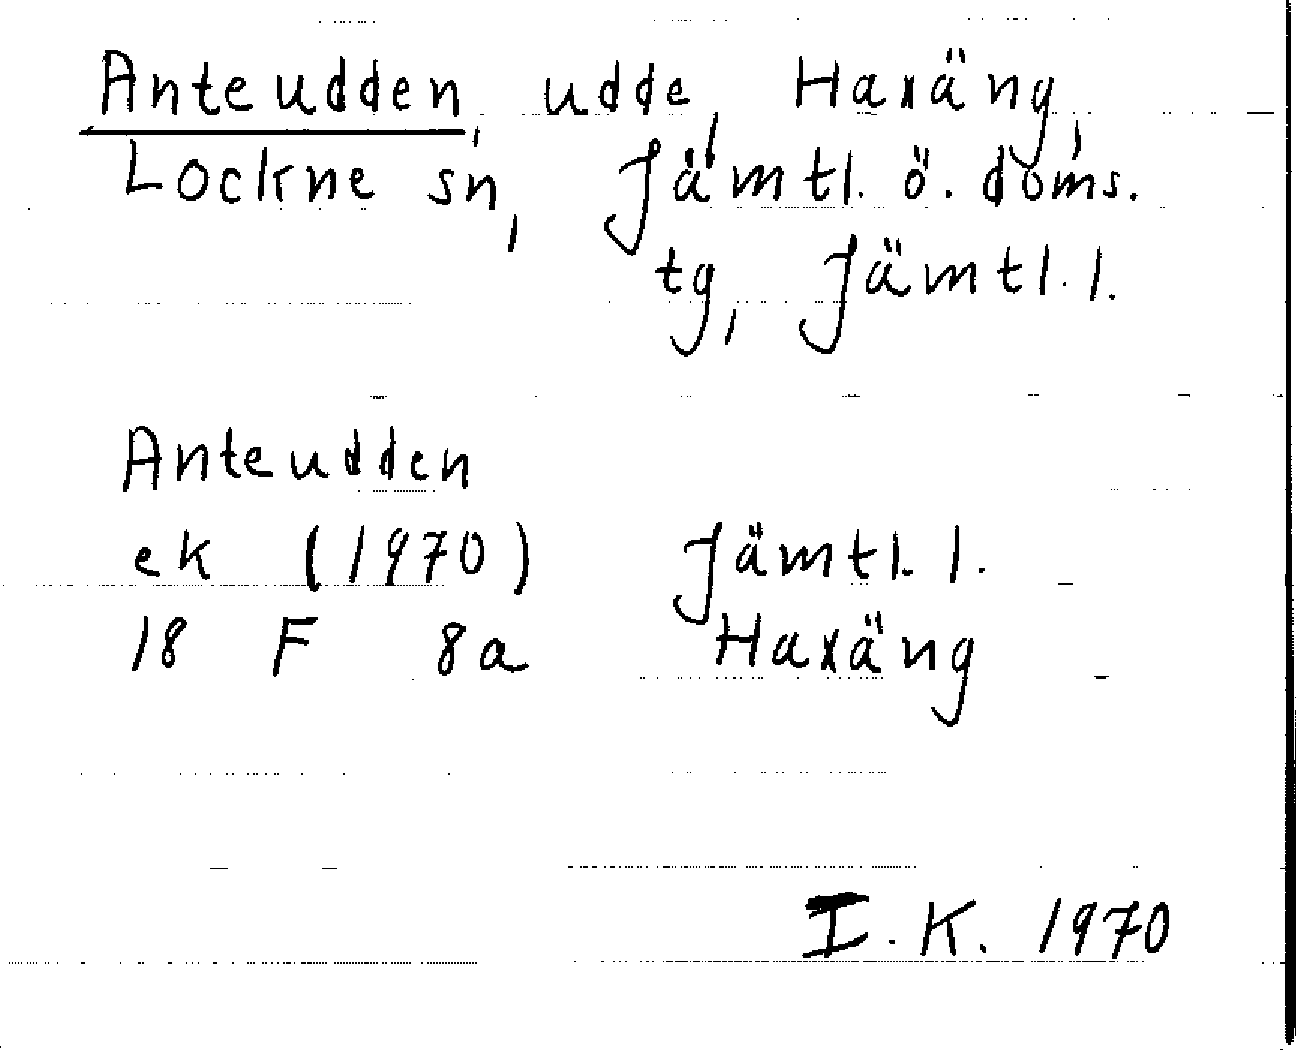 Anteudden, udde, Haxäng,
Lockne sn, Jämtl. ö. doms.
tg, Jämtl. l.
Anteudden
ek (1970) Jämtl. l.
18 F 8a Haxäng
I. K. 1970